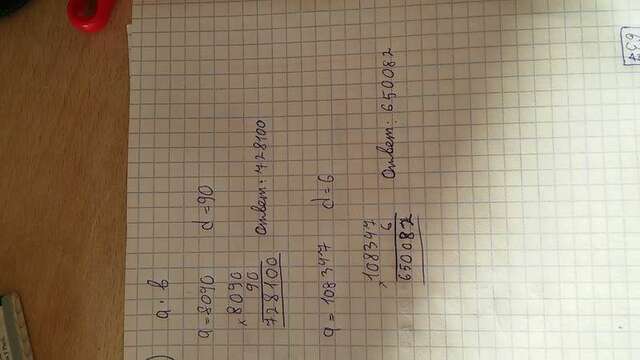 a · b
a = 8090 d = 90
× 8090
90
728100 Ответ: 728100
a = 108347 d = 6
× 108347
6
650082 Ответ: 650082